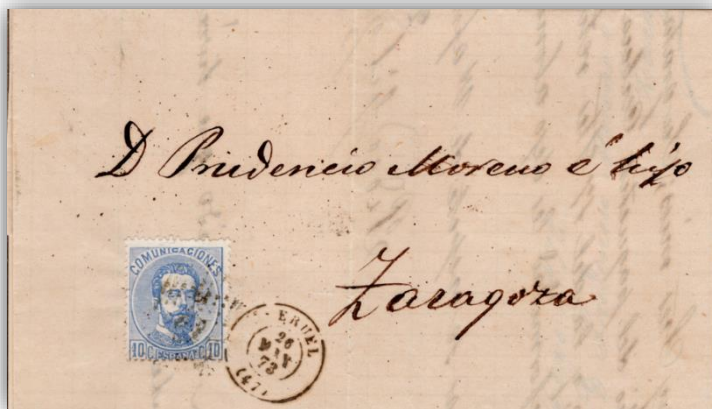 D Prudencio Moreno é hijo
Zaragoza
COMUNICACIONES
10 C. ESPAÑA C. 10
ERUEL
26
MAY
73
(47)